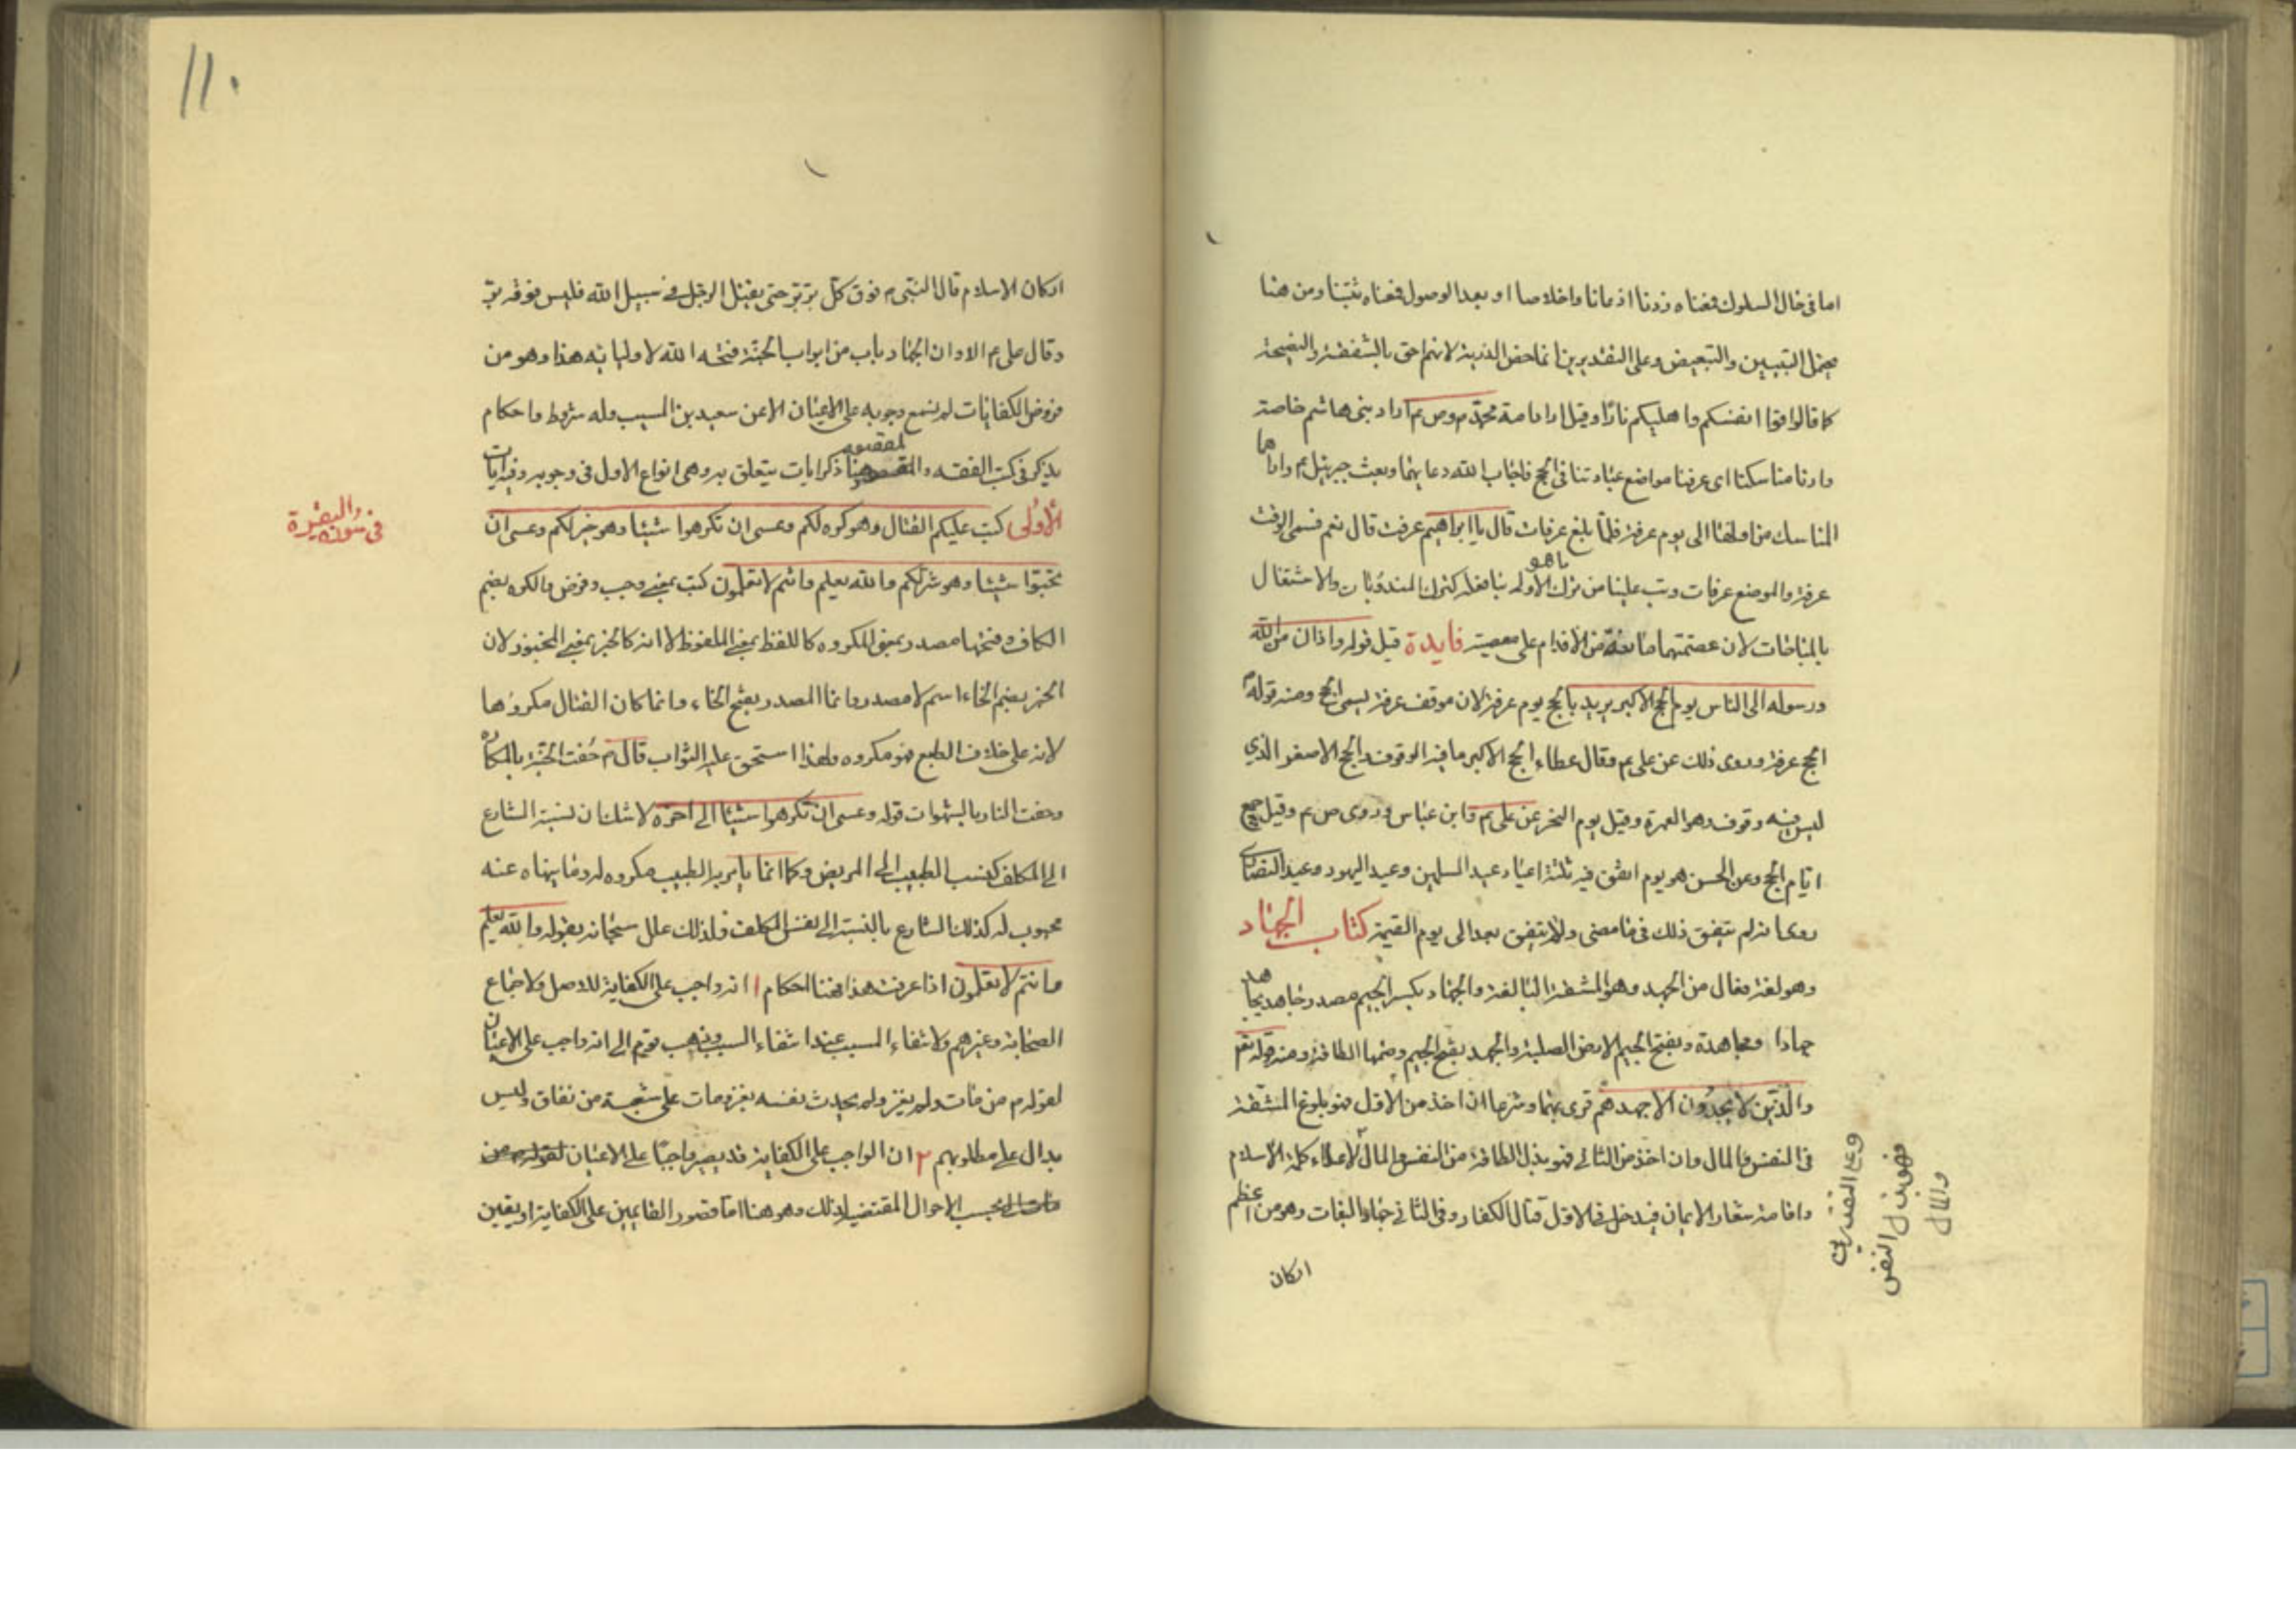 اما فی حال السلوك فمعناه زدنا اذعانا واخلاصا او بعد الوصول فمعناه ثبتنا ومن هنا
يحتمل التبيين والتبعيض وعلى التقديرين انما خص الذرية لانهم احق بالشفقة والنصيحة
كما قال قوا انفسكم واهليكم نارا وقيل اراد امة محمد م وص ع اراد بنی هاشم خاصة
وارنا مناسكنا ای عرفنا مواضع عباداتنا فی الحج فاجاب الله دعائهما وبعث جبرئيل ع واراهما
المناسك من اولها الی يوم عرفة فلما بلغ عرفات قال يا ابراهيم عرفت قال نعم فسمی الوقت
عرفة والموضع عرفات وتب علينا من ترك الاولی بنا فعله كترك المندوبات والاشتغال
ما هو
بالمباحات لان عصمتهما مانعة من الاقدام علی معصية فايدة قيل قوله واذان من الله
ورسوله الی الناس يوم الحج الاكبر يريد بالحج يوم عرفة لان موقف عرفة يسمی الحج ومنه قوله م
الحج عرفة وروی ذلك عن علی ع وقال عطاء الحج الاكبر ما فيه الوقوف والحج الاصغر الذي
ليس فيه وقوف وهو العمرة وقيل يوم النحر عن علی ع وابن عباس وروی ص ع وقيل جميع
ايام الحج وعن الحسن هو يوم اتفق فيه ثلثة اعياد عيد المسلمين وعيد اليهود وعيد النصاری
روی انه لم يتفق ذلك فی ما مضی ولا يتفق بعد الی يوم القيمة كتاب الجهاد
وهو لغة فعال من الجهد وهو المشقة البالغة والجهاد بكسر الجيم مصدر جاهد يجاهد
جهادا ومجاهدة وبفتح الجيم الارض الصلبة والجهد بفتح الجيم وضمها الطاقة ومنه قوله تعم
والذين لا يجدون الا جهدهم قری بهما وشرعا ان اخذ من الاول فهو بلوغ المشقة
فی النفس والمال وان اخذ من الثانی فهو بذل الطاقة من النفس والمال لاعلاء كلمة الاسلام
واقامة شعار الايمان فيدخل فی الاول قتال الكفار وفی الثانی جهاد البغات وهو من اعظم
اركان
وعلی التقديرين
فهو بذل النفس
والمال
١١٠
اركان الاسلام قال النبی م فوق كل بر بر حتی يقتل الرجل فی سبيل الله فليس فوقه بر
وقال علی ع الا وان الجهاد باب من ابواب الجنة فتحه الله لاوليائه هذا وهو من
فروض الكفايات لم يسمع وجوبه علی الاعيان الا عن سعيد بن المسيب وله شروط واحكام
يذكر فی كتب الفقه والمقصود هنا ذكر ايات يتعلق به وهی انواع الاول فی وجوبه وفيه ايات
الأولی كتب عليكم القتال وهو كره لكم وعسی ان تكرهوا شيئا وهو خير لكم وعسی ان
فی سورة البقرة
تحبوا شيئا وهو شر لكم والله يعلم وانتم لا تعلمون كتب بمعنی وجب وفرض والكره بضم
الكاف وفتحها مصدر بمعنی المكروه كاللفظ بمعنی الملفوظ لا انه كالخبز بمعنی المخبوز لان
الخبز بضم الخاء اسم لا مصدر وانما المصدر بفتح الخاء وانما كان القتال مكروها
لانه علی خلاف الطبع فهو مكروه ولهذا استحق عليه الثواب قال م حفت الجنة بالمكاره
وحفت النار بالشهوات قوله وعسی ان تكرهوا شيئا الی اخره لا شك ان نسبة الشارع
الی المكلف كنسبة الطبيب الی المريض وكما انما يامر به الطبيب مكروه له وما ينهاه عنه
محبوب له كذلك الشارع بالنسبة الی نفس المكلف فلذلك علل سبحانه بقوله والله يعلم
وانتم لا تعلمون اذا عرفت هذا فهنا احكام ١ انه واجب علی الكفاية للاصل ولاجماع
الصحابة وغيرهم ولانتفاء المسبب عند انتفاء السبب وذهب قوم الی انه واجب علی الاعيان
لقوله م من مات ولم يغز ولم يحدث نفسه بغزو مات علی شعبة من نفاق وليس
بدال علی مطلوبهم ٢ ان الواجب علی الكفاية قد يصير واجبا علی الاعيان
بحسب الاحوال المقتضية لذلك وهو هنا اما قصور القائمين علی الكفاية او بتعين